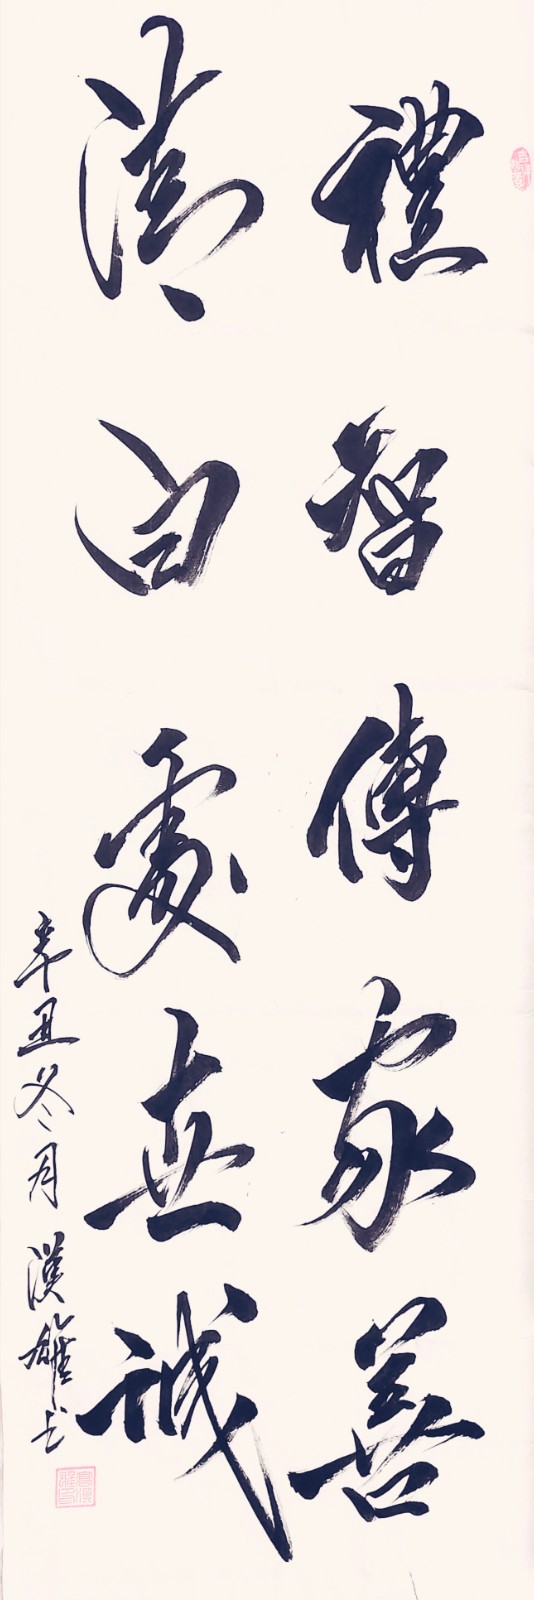 禮智傳家善
清白處世誠
辛丑冬月漢雄書